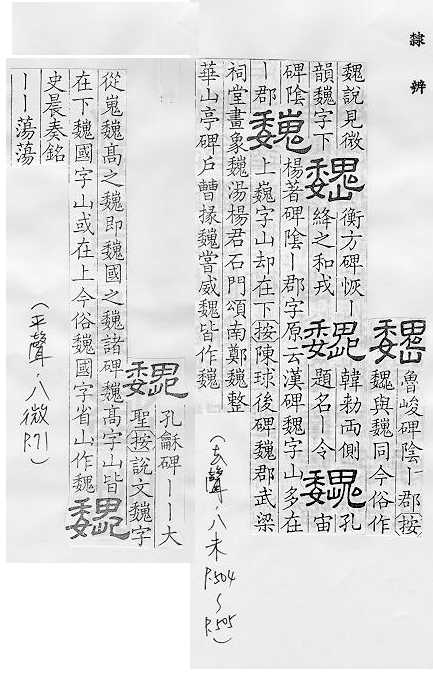 隸辨
魏
魯峻碑陰丨郡按
魏與魏同今俗作
魏說見微
韻巍字下
魏
衡方碑恢丨
絳之和戎
魏
韓勑兩側
題名丨令
魏
孔
宙
碑陰
丨郡
巍
楊著碑陰丨郡字原云漢碑魏字山多在
上巍字山却在下按陳球後碑魏郡武梁
祠堂畫象魏湯楊君石門頌南鄭魏整
華山亭碑戶曹掾魏嘗威魏皆作巍
(去聲·八未 P.504~P.505)
巍
孔龢碑丨丨大
聖按說文巍字
從嵬巍高之巍即魏國之魏諸碑巍高字山皆
在下魏國字山或在上今俗魏國字省山作魏
巍
史晨奏銘
丨丨蕩蕩
(平聲·八微 P.71)